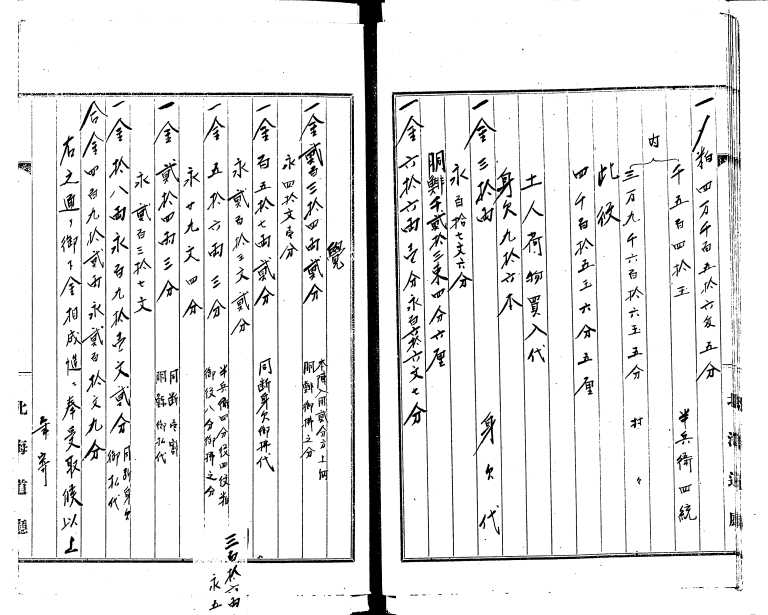 一ノ粕四万千百五拾六友五分
半兵衛四統
内
千五百四拾玉
三万九千六百拾六玉五分 村々
此役
四千百拾五玉六分五厘
土人荷物買入代
身欠九拾六本
一金三拾両 身欠代
永百拾七文六分
胴鯡千弐拾三束四分六厘
一金六拾六両壱分永百六拾六文七分
北海道庁
覚
一金弐百三拾四両弐分
永四拾文壱分
胴鯡御払之分
一金百五拾七両弐分 同断身欠御払代
永弐百拾三文弐分
一金五拾六両三分
永廿九文四分
半兵衛四分役四役指
御役八分御払之分
一金弐拾四両三分
永弐百三拾七文
同断
胴鯡御払代
一金拾八両永百九拾壱文弐分 同断身欠御払代
合金四百九拾弐両永弐百拾文九分
右之通御下金相成慥ニ奉受取候以上
年寄
三百拾六両
永五
北海道庁